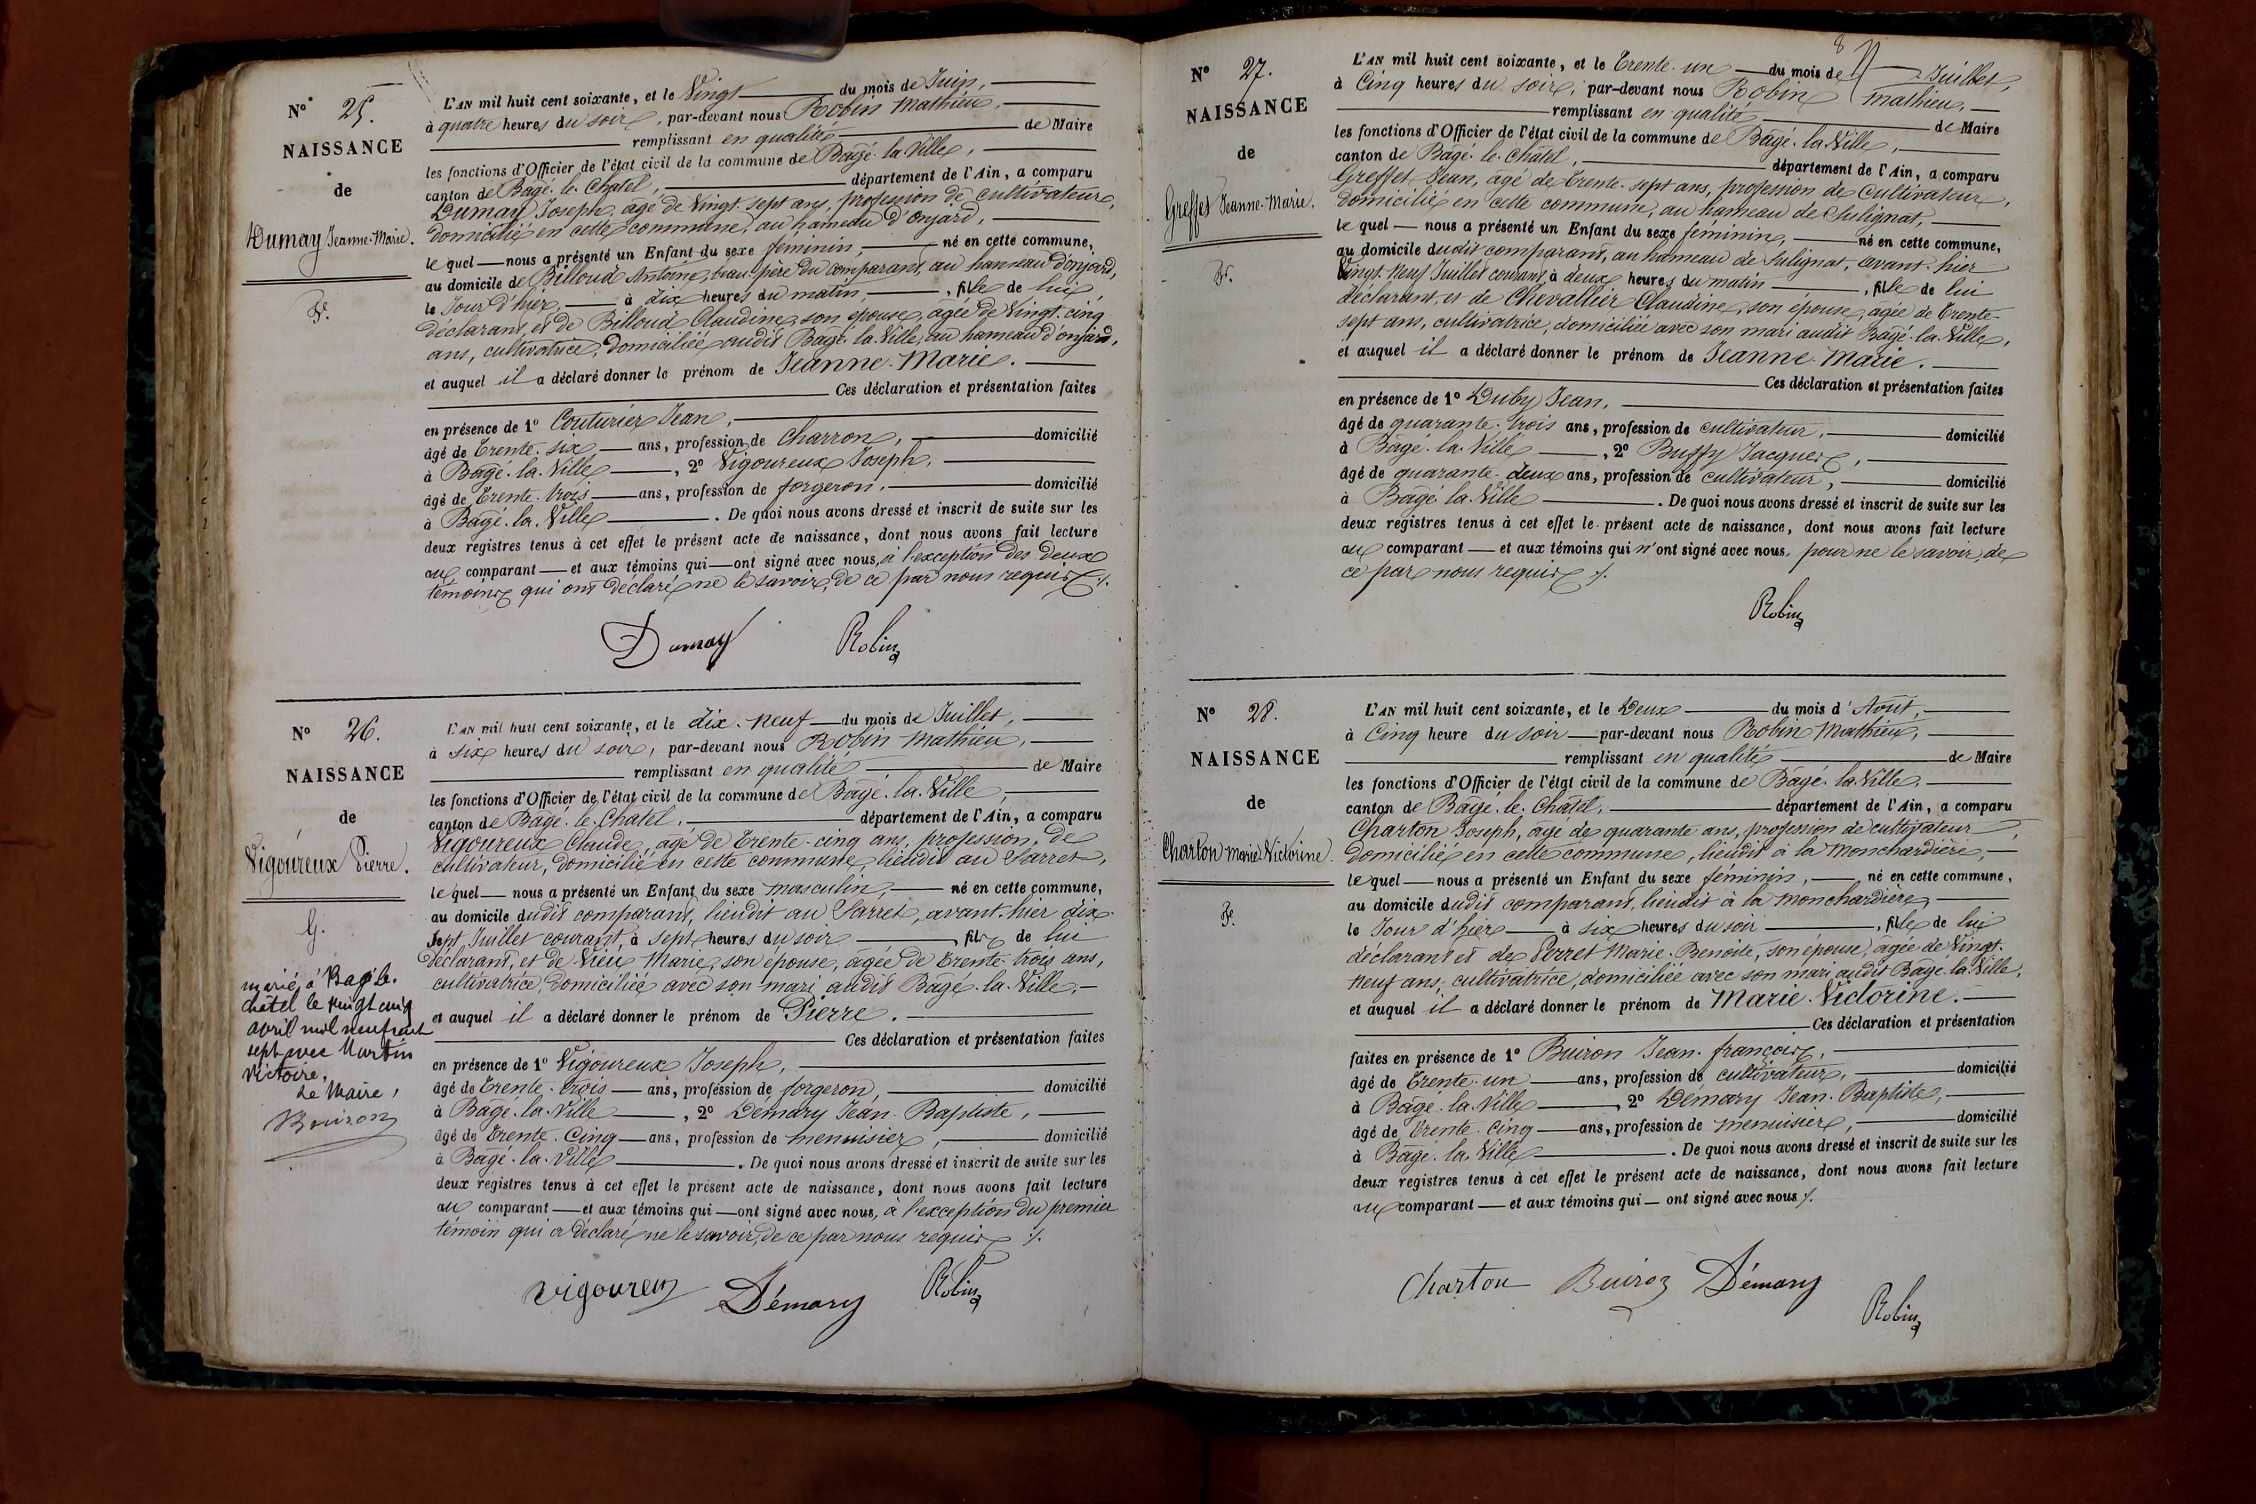 N° 25.
NAISSANCE
de
Dumay Jeanne-Marie.
Fe.
L'AN mil huit cent soixante, et le Vingt du mois de Juin,
à quatre heures du soir, par-devant nous Robin Mathieu,
remplissant en qualité de Maire
les fonctions d'Officier de l'état civil de la commune de Bâgé-la-Ville,
canton de Bâgé-le-Châtel, département de l'Ain, a comparu
Dumay Joseph, âgé de Vingt-sept ans, profession de cultivateur,
domicilié en cette commune, au hameau d'Onjard,
le quel nous a présenté un Enfant du sexe féminin, né en cette commune,
au domicile de Billoud Antoine, beau-père du comparant, au hameau d'onjard,
le Jour d'hier, à dix heures du matin, , fille de lui
déclarant, et de Billoud Claudine, son épouse, âgée de Vingt-cinq
ans, cultivatrice, domiciliée audit Bâgé-la-Ville, au hameau d'onjard,
et auquel il a déclaré donner le prénom de Jeanne-Marie.
Ces déclaration et présentation faites
en présence de 1° Couturier Jean,
âgé de Trente-six ans, profession de Charron, domicilié
à Bâgé-la-Ville, 2° Vigoureux Joseph,
âgé de Trente-trois ans, profession de forgeron, domicilié
à Bâgé-la-Ville. De quoi nous avons dressé et inscrit de suite sur les
deux registres tenus à cet effet le présent acte de naissance, dont nous avons fait lecture
au comparant et aux témoins qui ont signé avec nous, à l'exception des deux
témoins qui ont déclaré ne le savoir, de ce par nous requis ./.
Dumay Robin
N° 26.
NAISSANCE
de
Vigoureux Pierre.
G.
marié à Bagé le
châtel le vingt cinq
avril mil neuf cent
sept avec Martin
Victoire.
Le Maire,
Bouiron
L'AN mil huit cent soixante, et le dix-neuf du mois de Juillet,
à six heures du soir, par-devant nous Robin Mathieu,
remplissant en qualité de Maire
les fonctions d'Officier de l'état civil de la commune de Bâgé-la-Ville,
canton de Bâgé-le-Châtel, département de l'Ain, a comparu
Vigoureux Claude, âgé de Trente-cinq ans, profession de
cultivateur, domicilié en cette commune, lieudit au Sarret,
le quel nous a présenté un Enfant du sexe masculin, né en cette commune,
au domicile dudit comparant, lieudit au Sarret, avant-hier dix-
Sept Juillet courant, à sept heures du soir, fils de lui
déclarant, et de Vieu Marie, son épouse, âgée de Trente-trois ans,
cultivatrice, domiciliée avec son mari audit Bâgé-la-Ville,
et auquel il a déclaré donner le prénom de Pierre.
Ces déclaration et présentation faites
en présence de 1° Vigoureux Joseph,
âgé de Trente-trois ans, profession de forgeron, domicilié
à Bâgé-la-Ville, 2° Démary Jean-Baptiste,
âgé de Trente-Cinq ans, profession de menuisier, domicilié
à Bâgé-la-Ville. De quoi nous avons dressé et inscrit de suite sur les
deux registres tenus à cet effet le présent acte de naissance, dont nous avons fait lecture
au comparant et aux témoins qui ont signé avec nous, à l'exception du premier
témoin qui a déclaré ne le savoir, de ce par nous requis ./.
Vigoureux Démary Robin
8
N° 27.
NAISSANCE
de
Greffet Jeanne-Marie.
Fe.
L'AN mil huit cent soixante, et le Trente-un du mois de Juillet,
à Cinq heures du soir, par-devant nous Robin Mathieu,
remplissant en qualité de Maire
les fonctions d'Officier de l'état civil de la commune de Bâgé-la-Ville,
canton de Bâgé-le-Châtel, département de l'Ain, a comparu
Greffet Jean, âgé de Trente-sept ans, profession de Cultivateur,
domicilié en cette commune, au hameau de Sulignat,
le quel nous a présenté un Enfant du sexe féminin, né en cette commune,
au domicile dudit comparant, au hameau de Sulignat, avant-hier
Vingt-Neuf Juillet courant, à deux heures du matin, fille de lui
déclarant, et de Chevallier Claudine, son épouse, âgée de Trente-
sept ans, cultivatrice, domiciliée avec son mari audit Bâgé-la-Ville,
et auquel il a déclaré donner le prénom de Jeanne-Marie.
Ces déclaration et présentation faites
en présence de 1° Duby Jean,
âgé de quarante-trois ans, profession de cultivateur, domicilié
à Bâgé-la-Ville, 2° Buffy Jacques,
âgé de quarante-deux ans, profession de cultivateur, domicilié
à Bâgé-la-Ville. De quoi nous avons dressé et inscrit de suite sur les
deux registres tenus à cet effet le présent acte de naissance, dont nous avons fait lecture
au comparant et aux témoins qui n'ont signé avec nous, pour ne le savoir, de
ce par nous requis ./.
Robin
N° 28.
NAISSANCE
de
Charton Marie-Victorine.
Fe.
L'AN mil huit cent soixante, et le Deux du mois d'Aout,
à Cinq heure du soir par-devant nous Robin Mathieu,
remplissant en qualité de Maire
les fonctions d'Officier de l'état civil de la commune de Bâgé-la-Ville,
canton de Bâgé-le-Châtel, département de l'Ain, a comparu
Charton Joseph, âgé de quarante ans, profession de cultivateur,
domicilié en cette commune, lieudit à la Monchardière,
le quel nous a présenté un Enfant du sexe féminin, né en cette commune,
au domicile dudit comparant, lieudit à la monchardière,
le Jour d'hier à six heures du soir, fille de lui
déclarant et de Perret Marie-Benoite, son épouse, âgée de Vingt-
neuf ans, cultivatrice, domiciliée avec son mari audit Bâgé-la-Ville,
et auquel il a déclaré donner le prénom de Marie-Victorine.
Ces déclaration et présentation
faites en présence de 1° Buiron Jean-françois,
âgé de Trente-un ans, profession de cultivateur, domicilié
à Bâgé-la-Ville, 2° Démary Jean-Baptiste,
âgé de Trente-Cinq ans, profession de menuisier, domicilié
à Bâgé-la-Ville. De quoi nous avons dressé et inscrit de suite sur les
deux registres tenus à cet effet le présent acte de naissance, dont nous avons fait lecture
au comparant et aux témoins qui ont signé avec nous ./.
Charton Buiron Démary
Robin